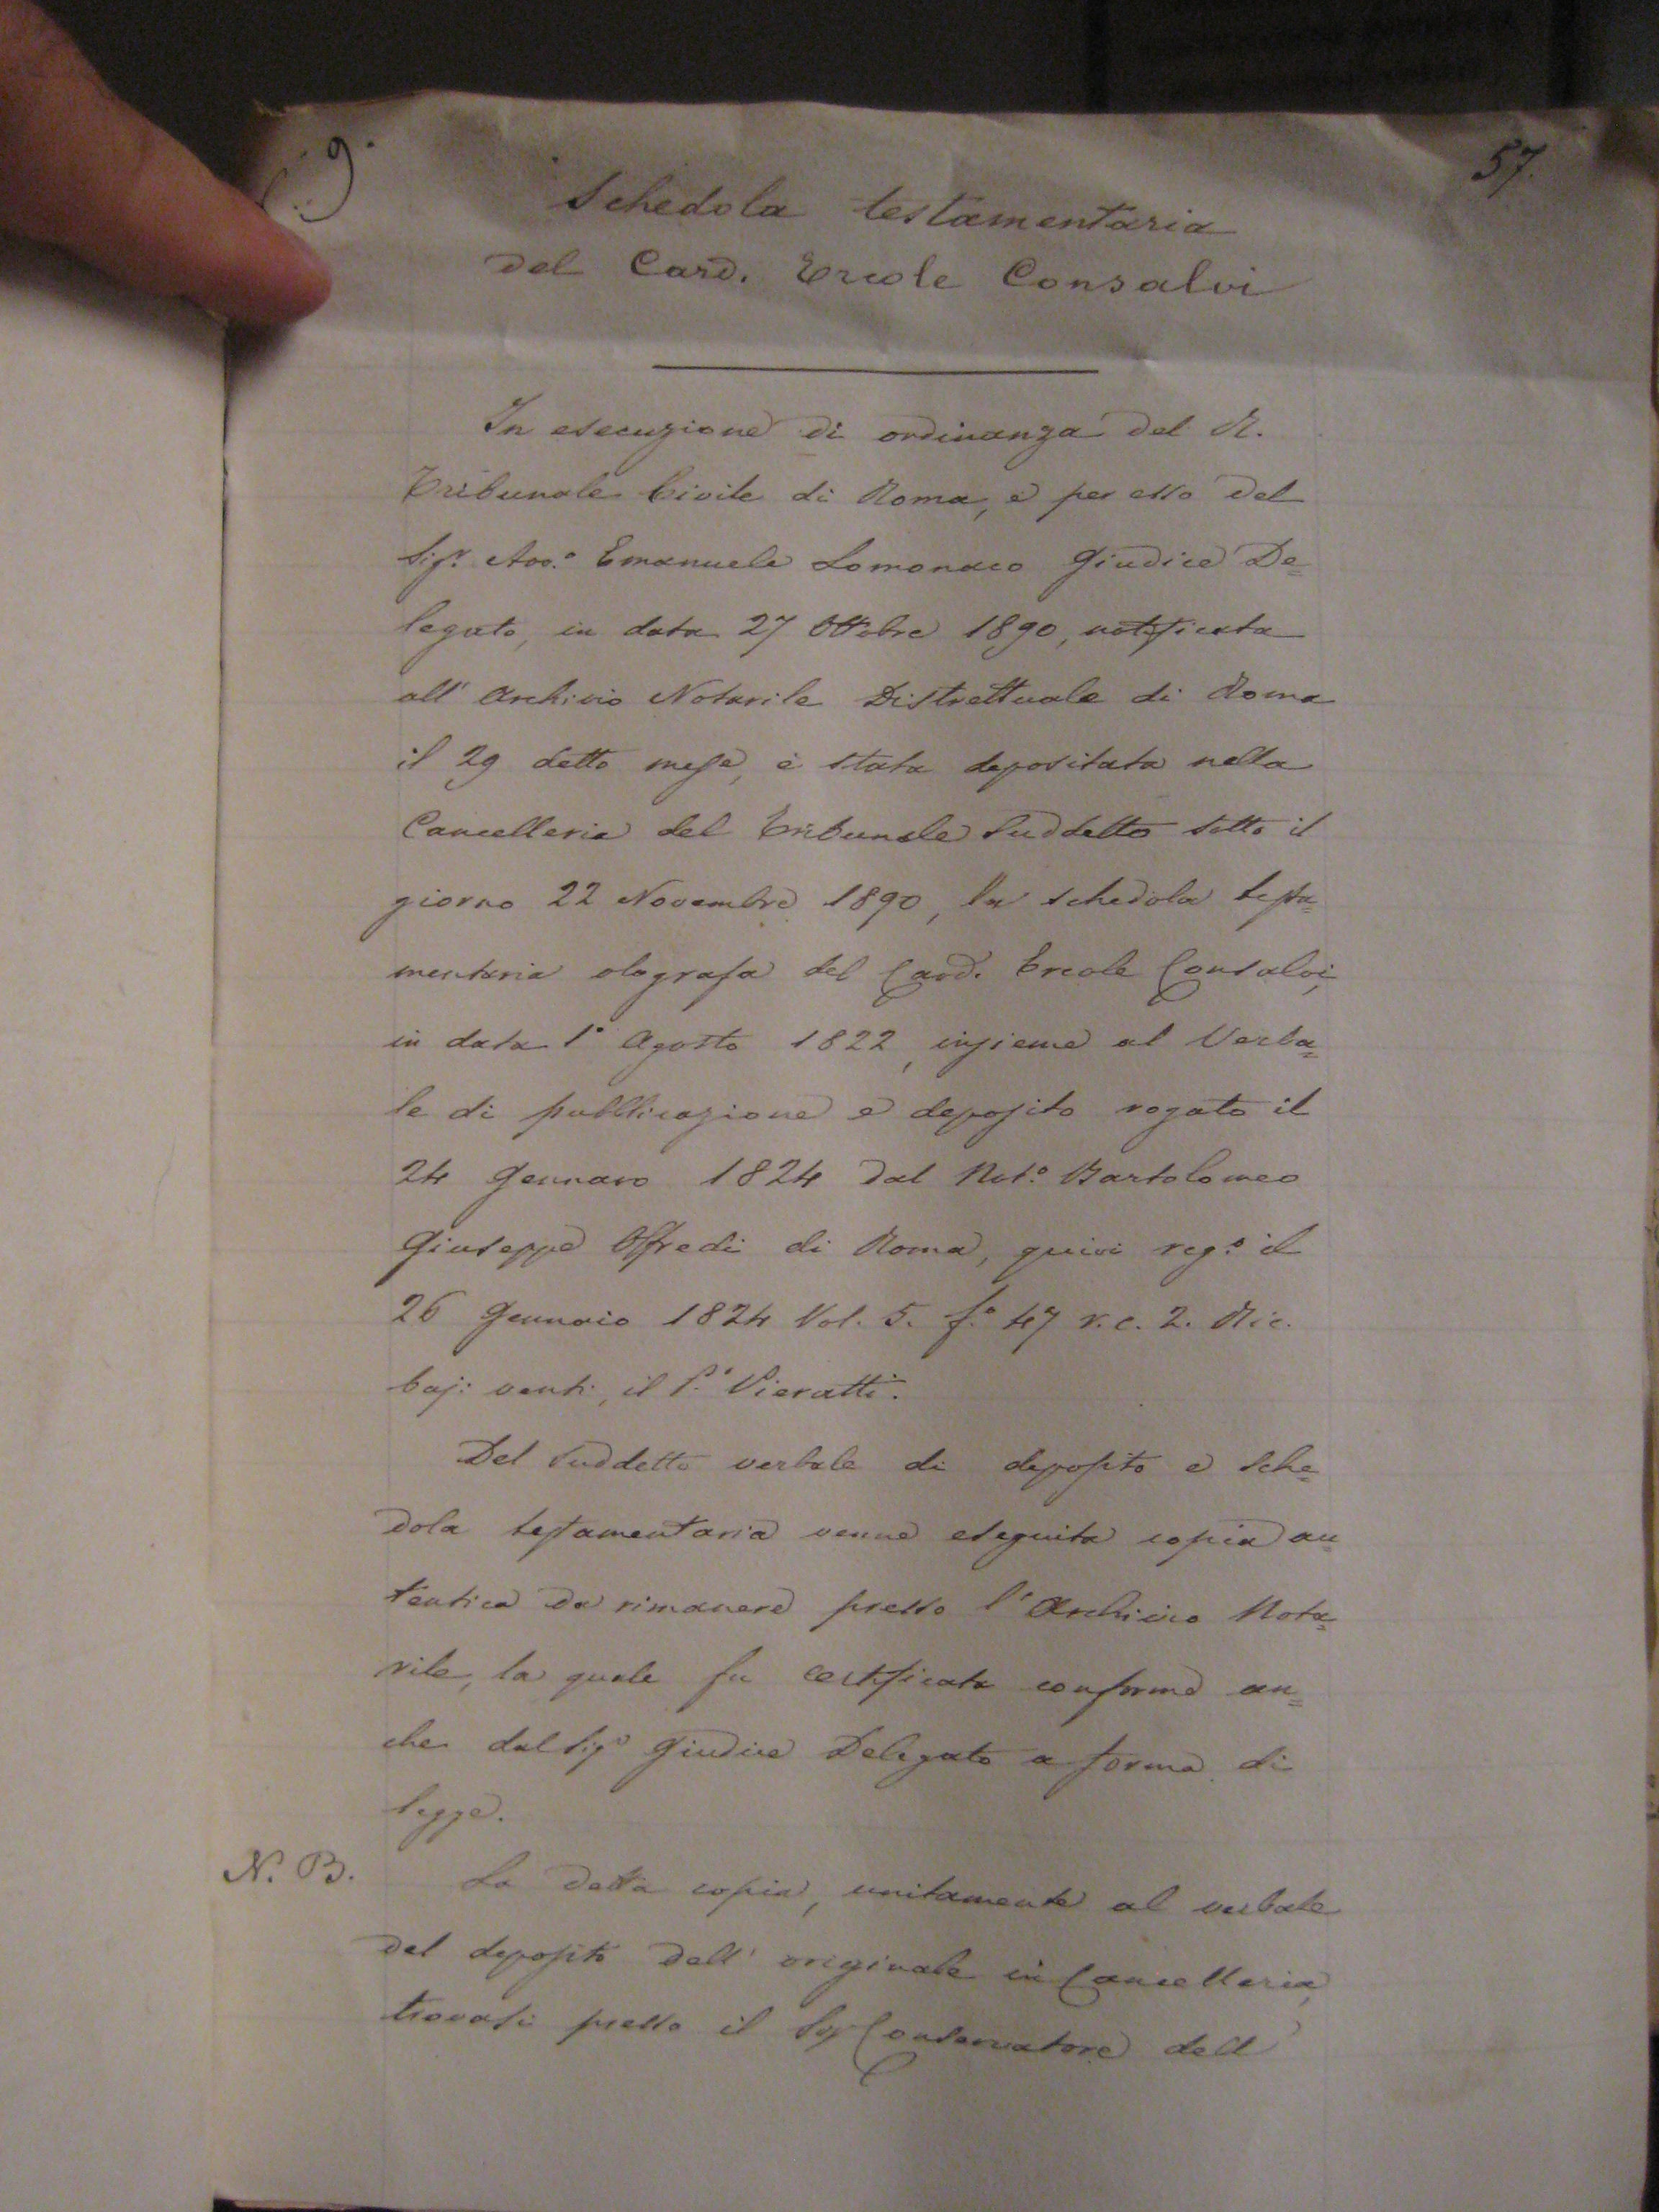 9.
57.
Schedola testamentaria
del Card. Ercole Consalvi
In esecuzione di ordinanza del R.
Tribunale Civile di Roma, e per esso del
Sigr. Avv.o Emanuele Lomonaco Giudice De=
legato, in data 27 Ottobre 1890, notificata
all' Archivio Notarile Distrettuale di Roma
il 29 detto mese, è stata depositata nella
Cancelleria del Tribunale suddetto sotto il
giorno 22 Novembre 1890, la schedola testa=
mentaria olografa del Card. Ercole Consalvi,
in data 1° Agosto 1822, insieme al Verba=
le di pubblicazione e deposito rogato il
24 Gennaro 1824 dal Not.o Bartolomeo
Giuseppe Offredi di Roma, quivi reg.o il
26 Gennaio 1824 Vol. 5. f.o 47 r. c. 2. Ric.
baj: venti, il P.o Pieratti.
Del suddetto verbale di deposito e sche=
dola testamentaria venne eseguita copia au=
tentica da rimanere presso l' Archivio Nota=
rile, la quale fu certificata conforme an=
che dal Sigr Giudice Delegato a forma di
legge.
N. B.
La detta copia, unitamente al verbale
del deposito dell' originale in Cancelleria,
trovasi presso il Sigr Conservatore dell'